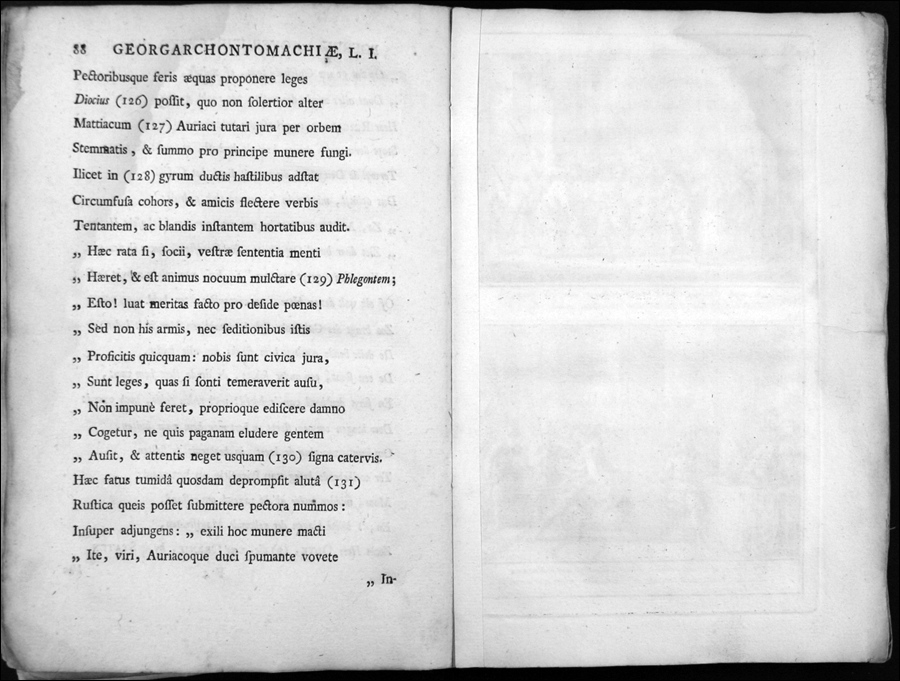 88 GEORGARCHONTOMACHIÆ, L. I.
Pectoribusque feris æquas proponere leges
Diocius (126) poſſit, quo non ſolertior alter
Mattiacum (127) Auriaci tutari jura per orbem
Stemmatis, & ſummo pro principe munere fungi.
Ilicet in (128) gyrum ductis haſtilibus adſtat
Circumfuſa cohors, & amicis flectere verbis
Tentantem, ac blandis inſtantem hortatibus audit.
„ Hæc rata ſi, ſocii, veſtræ ſententia menti
„ Hæret, & eſt animus nocuum mulctare (129) Phlegontem;
„ Eſto! luat meritas facto pro deſide pœnas!
„ Sed non his armis, nec ſeditionibus iſtis
„ Proficitis quicquam: nobis ſunt civica jura,
„ Sunt leges, quas ſi ſonti temeraverit auſu,
„ Non impunè feret, proprioque ediſcere damno
„ Cogetur, ne quis paganam eludere gentem
„ Auſit, & attentis neget usquam (130) ſigna catervis.
Hæc fatus tumidâ quosdam deprompſit alutâ (131)
Ruſtica queis poſſet ſubmittere pectora nummos:
Inſuper adjungens: „ exili hoc munere macti
„ Ite, viri, Auriacoque duci ſpumante vovete
„ In-